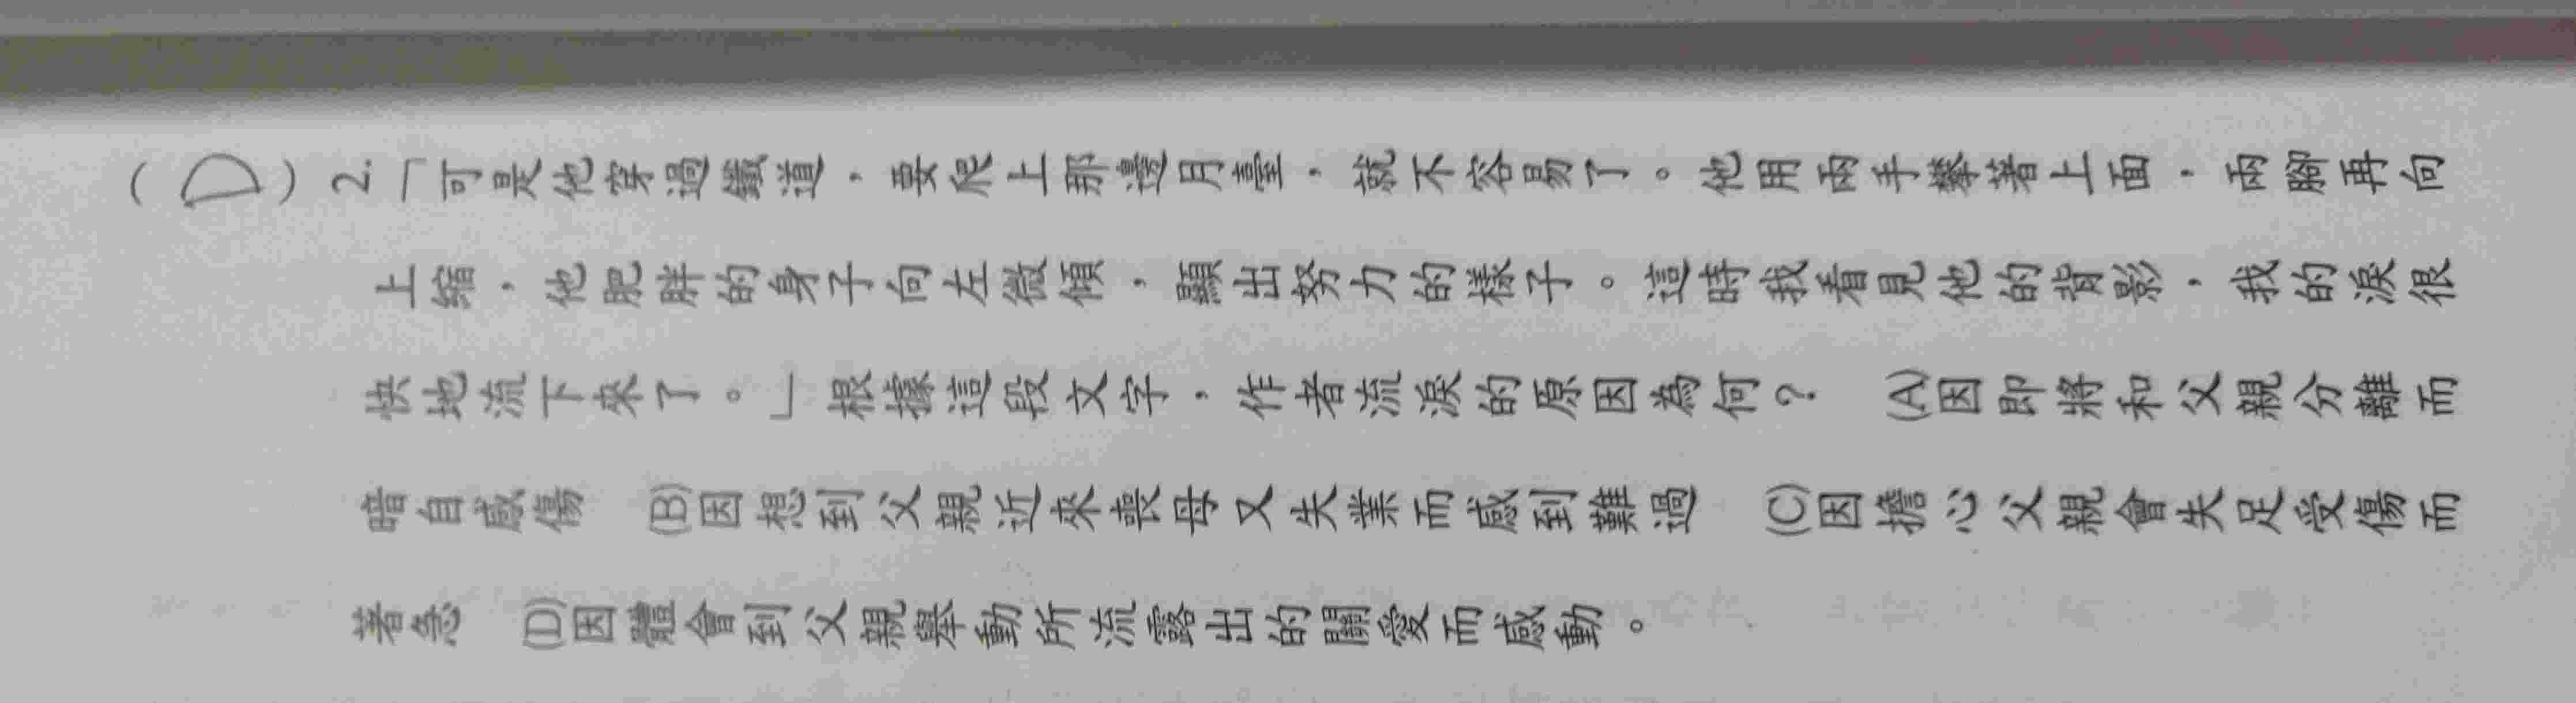 ( D ) 2.「可是他穿過鐵道，要爬上那邊月臺，就不容易了。他用兩手攀著上面，兩腳再向
上縮，他肥胖的身子向左微傾，顯出努力的樣子。這時我看見他的背影，我的淚很
快地流下來了。」根據這段文字，作者流淚的原因為何？　(A)因即將和父親分離而
暗自感傷　(B)因想到父親近來喪母又失業而感到難過　(C)因擔心父親會失足受傷而
著急　(D)因體會到父親舉動所流露出的關愛而感動。